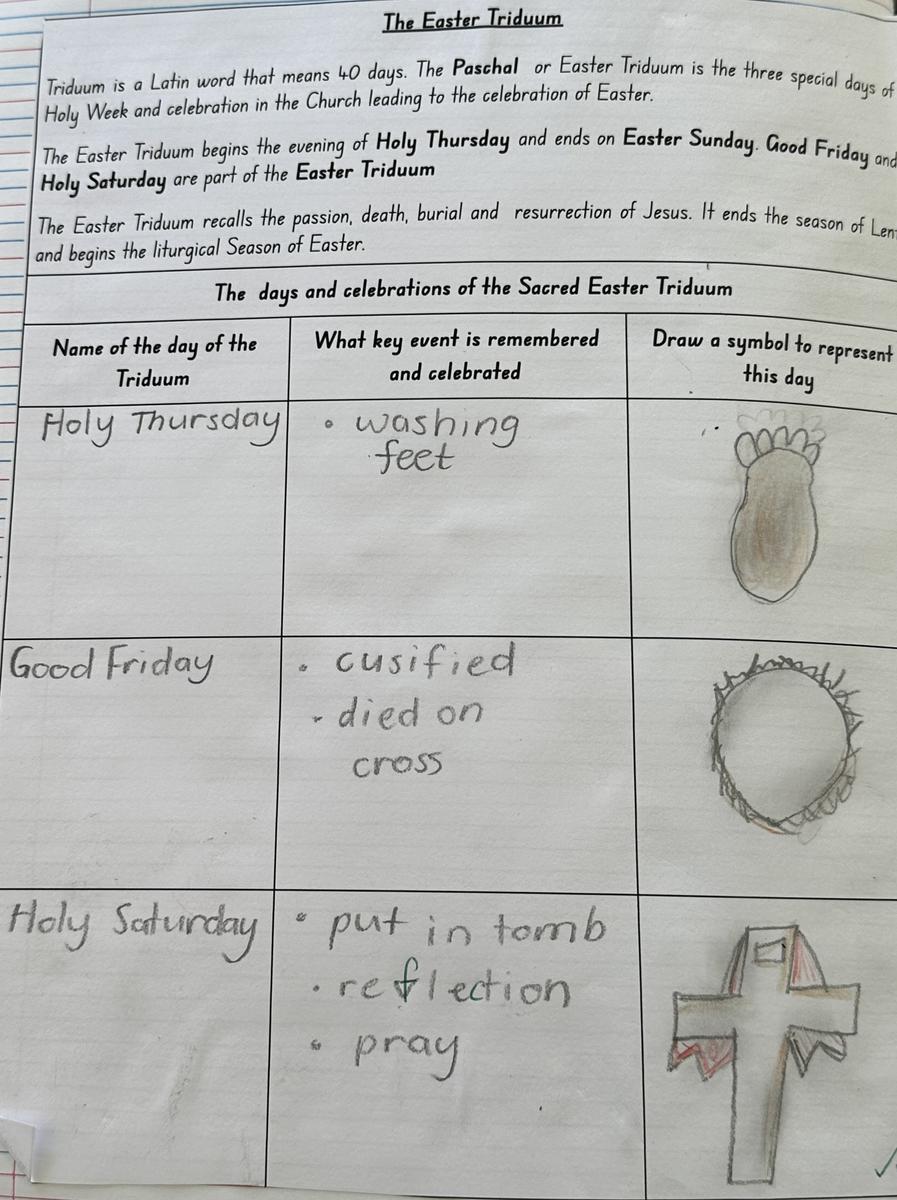 The Easter Triduum
Triduum is a Latin word that means 40 days. The Paschal or Easter Triduum is the three special days of
Holy Week and celebration in the Church leading to the celebration of Easter.
The Easter Triduum begins the evening of Holy Thursday and ends on Easter Sunday. Good Friday and
Holy Saturday are part of the Easter Triduum
The Easter Triduum recalls the passion, death, burial and resurrection of Jesus. It ends the season of Len
and begins the liturgical Season of Easter.
The days and celebrations of the Sacred Easter Triduum
Name of the day of the
Triduum
What key event is remembered
and celebrated
Draw a symbol to represent
this day
Holy Thursday
• washing
feet
Good Friday
• cusified
- died on
cross
Holy Saturday
• put in tomb
• reflection
• pray